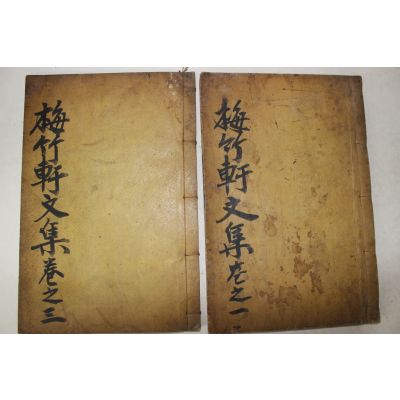 梅竹軒文集卷之三
梅竹軒文集卷之一